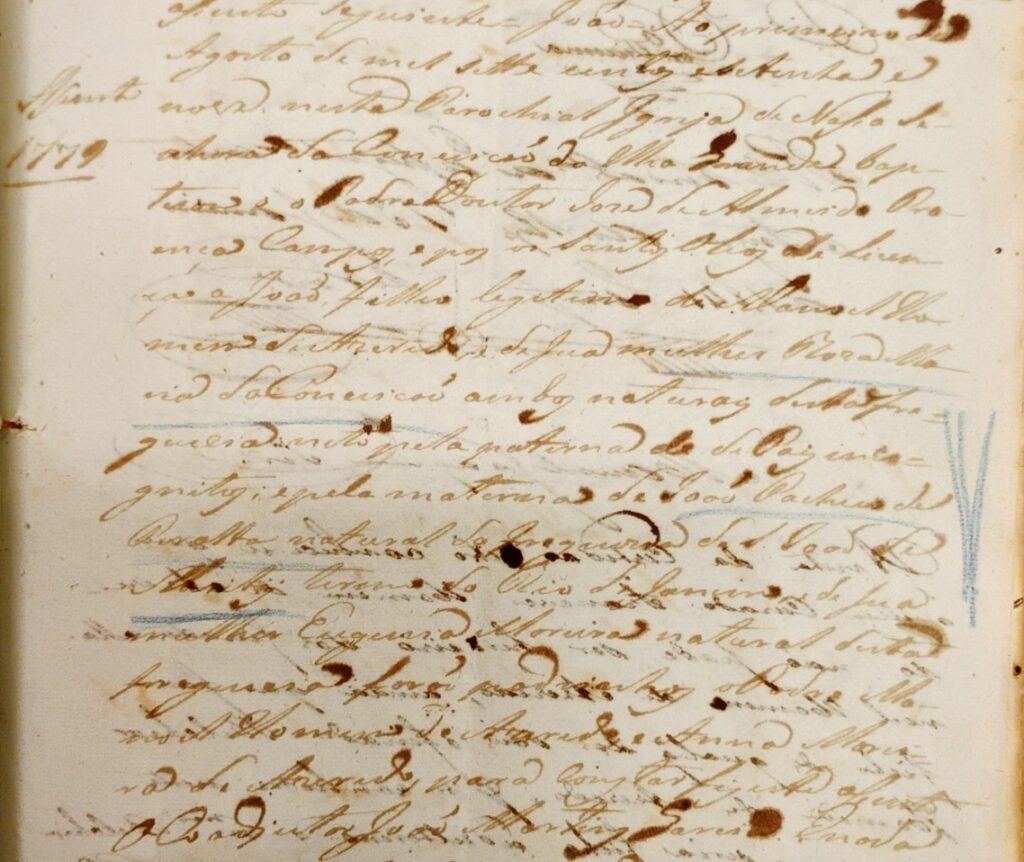 asento seguinte = João = Ao primeiro de
Agosto de mil sette centos esetenta e
nove nesta Parochial Igreja de Nossa Se-
nhora da Conceicaõ da Ilha Grande bap-
tizou o Padre Doutor Jozé de Almeida Pro
ença Campos, epos os Santos Oleos de licen-
ça a João, filho legitimo de Manoel Ho
mem de Azeredo, e de sua mulher Roza Ma
ria da Conceicaõ ambos naturaes desta fre-
guezia, neto pela paterna de Pays inco-
gnitos, epela materna de Joaõ Pacheco de
Peralta natural da freguezia de S. Joaõ de
Meriti termo do Rio de Janeiro, e de sua
mulher Eugenia Moreira natural desta
freguezia; foraõ padrinhos o Padre Ma-
noel Homem de Azeredo, e Anna Morei-
ra de Azeredo, para constar fiz este asento
O Coadjutor Joaõ Martins Garcia
Asento
1779